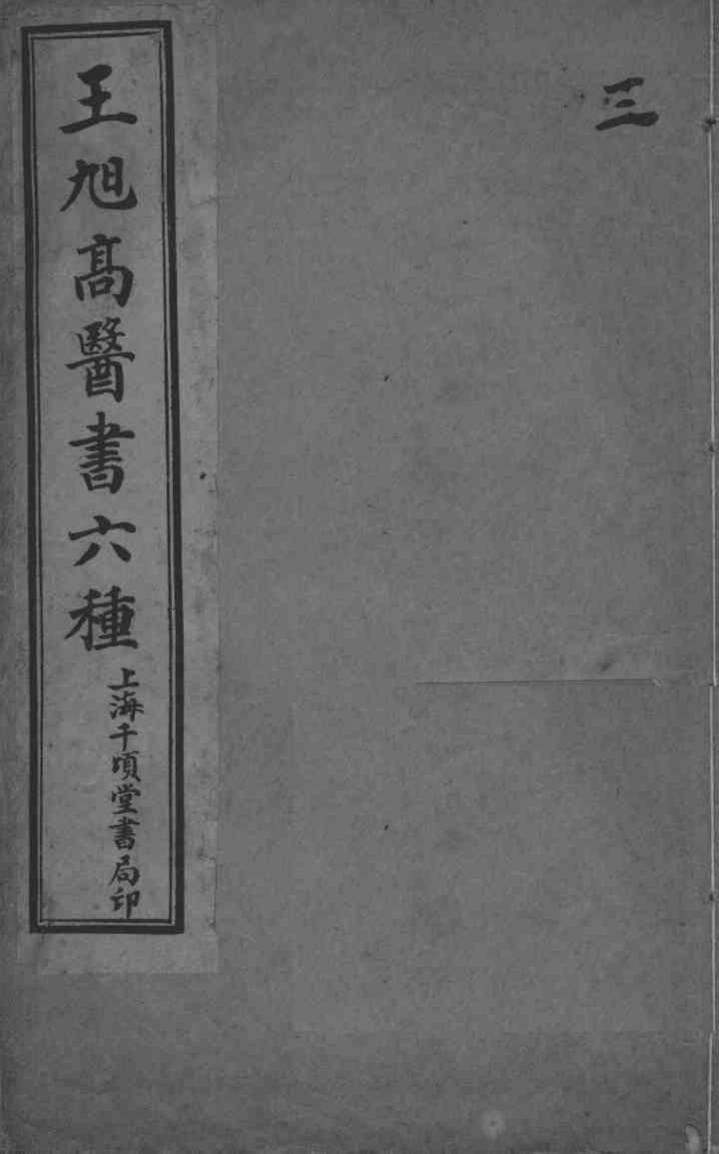 三
王旭高醫書六種
上海千頃堂書局印